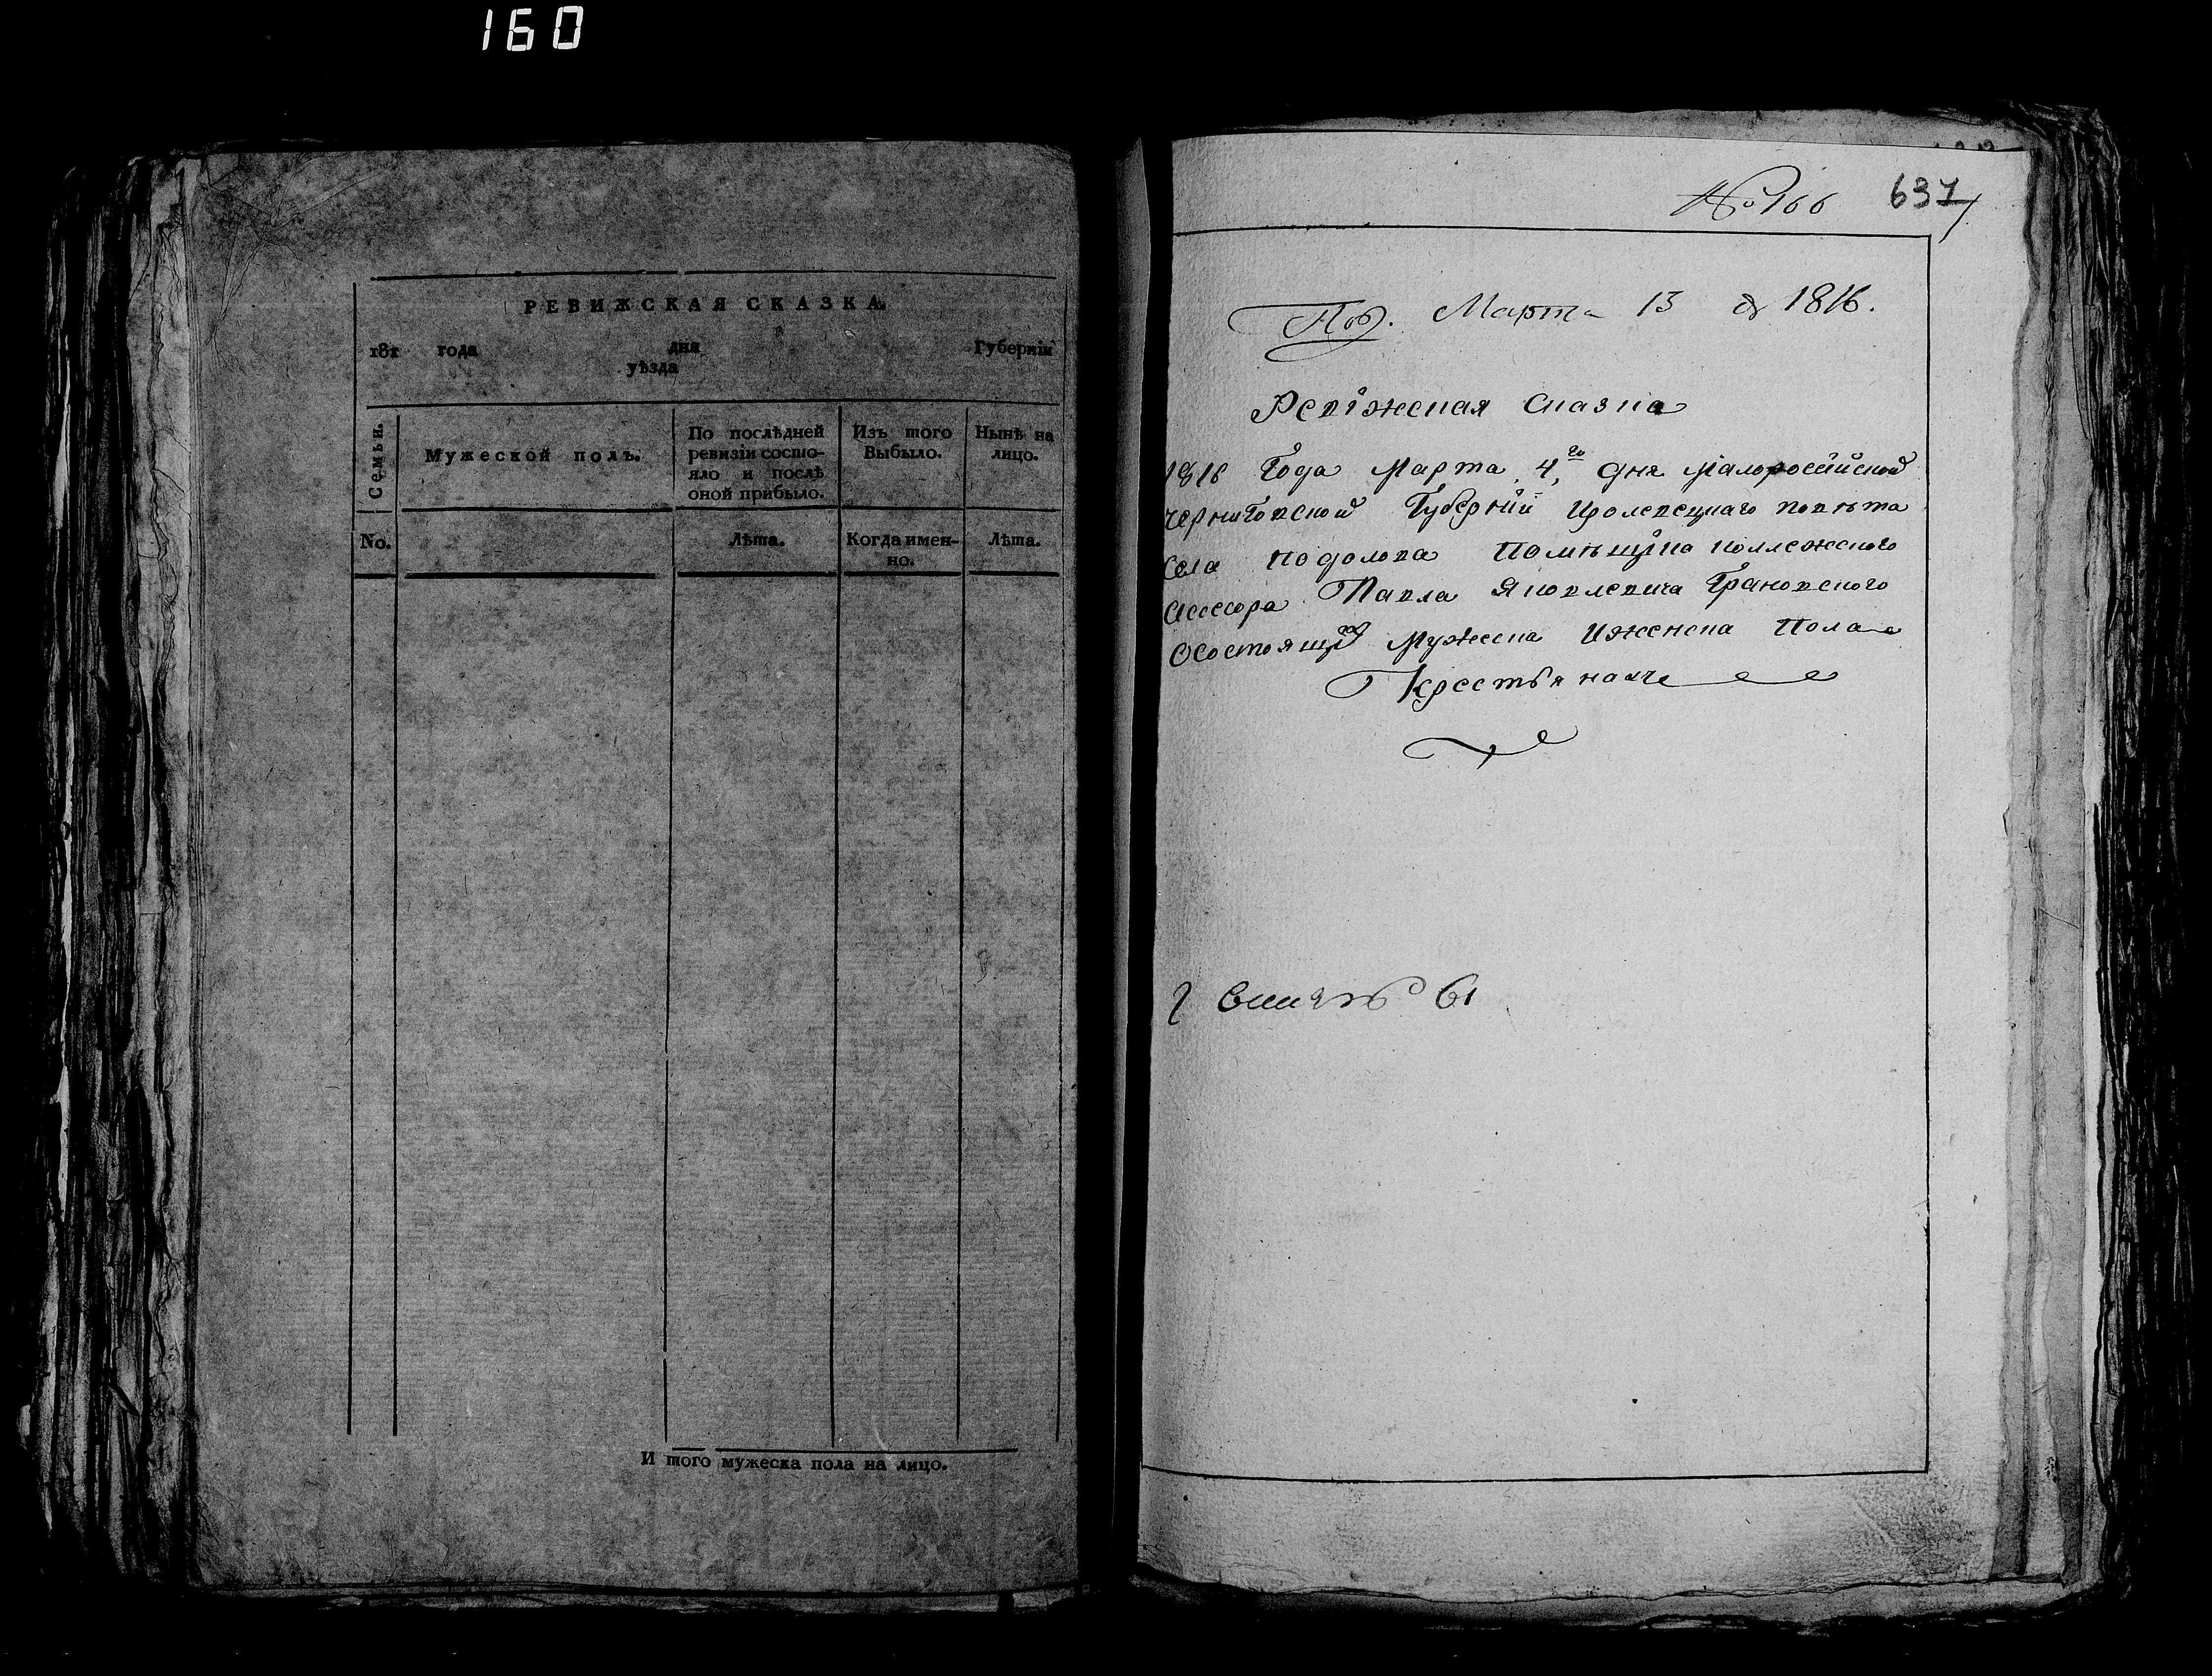 160
РЕВИЖСКАЯ СКАЗКА.
181 года дня Губерніи
уѣзда
Семьи.
Мужеской полъ.
По послѣдней
ревизіи состо-
яло и послѣ
оной прибыло.
Изъ того
Выбыло.
Нынѣ на
лицо.
No.
Лѣта.
Когда имен-
но.
Лѣта.
И того мужеска пола на лицо.
№ 166 637
Под. Марта 13 д 1816.
Ревіжская сказка
1816 Года Марта 4го дня Малоросійской
Черниговской Губерніи Кролевецкаго повѣта
села Подолова Помѣщика коллежского
Асессора Павла Яковлевича Грановского
Осостоящих Мужеска Иженска Пола
Крестьянах
61